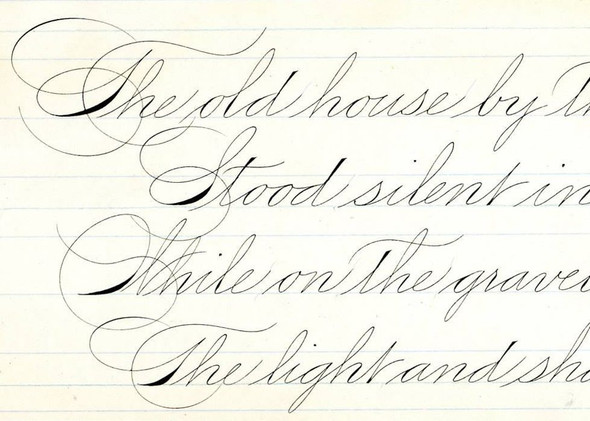 The old house by th
Stood silent in
While on the gravel
The light and sha